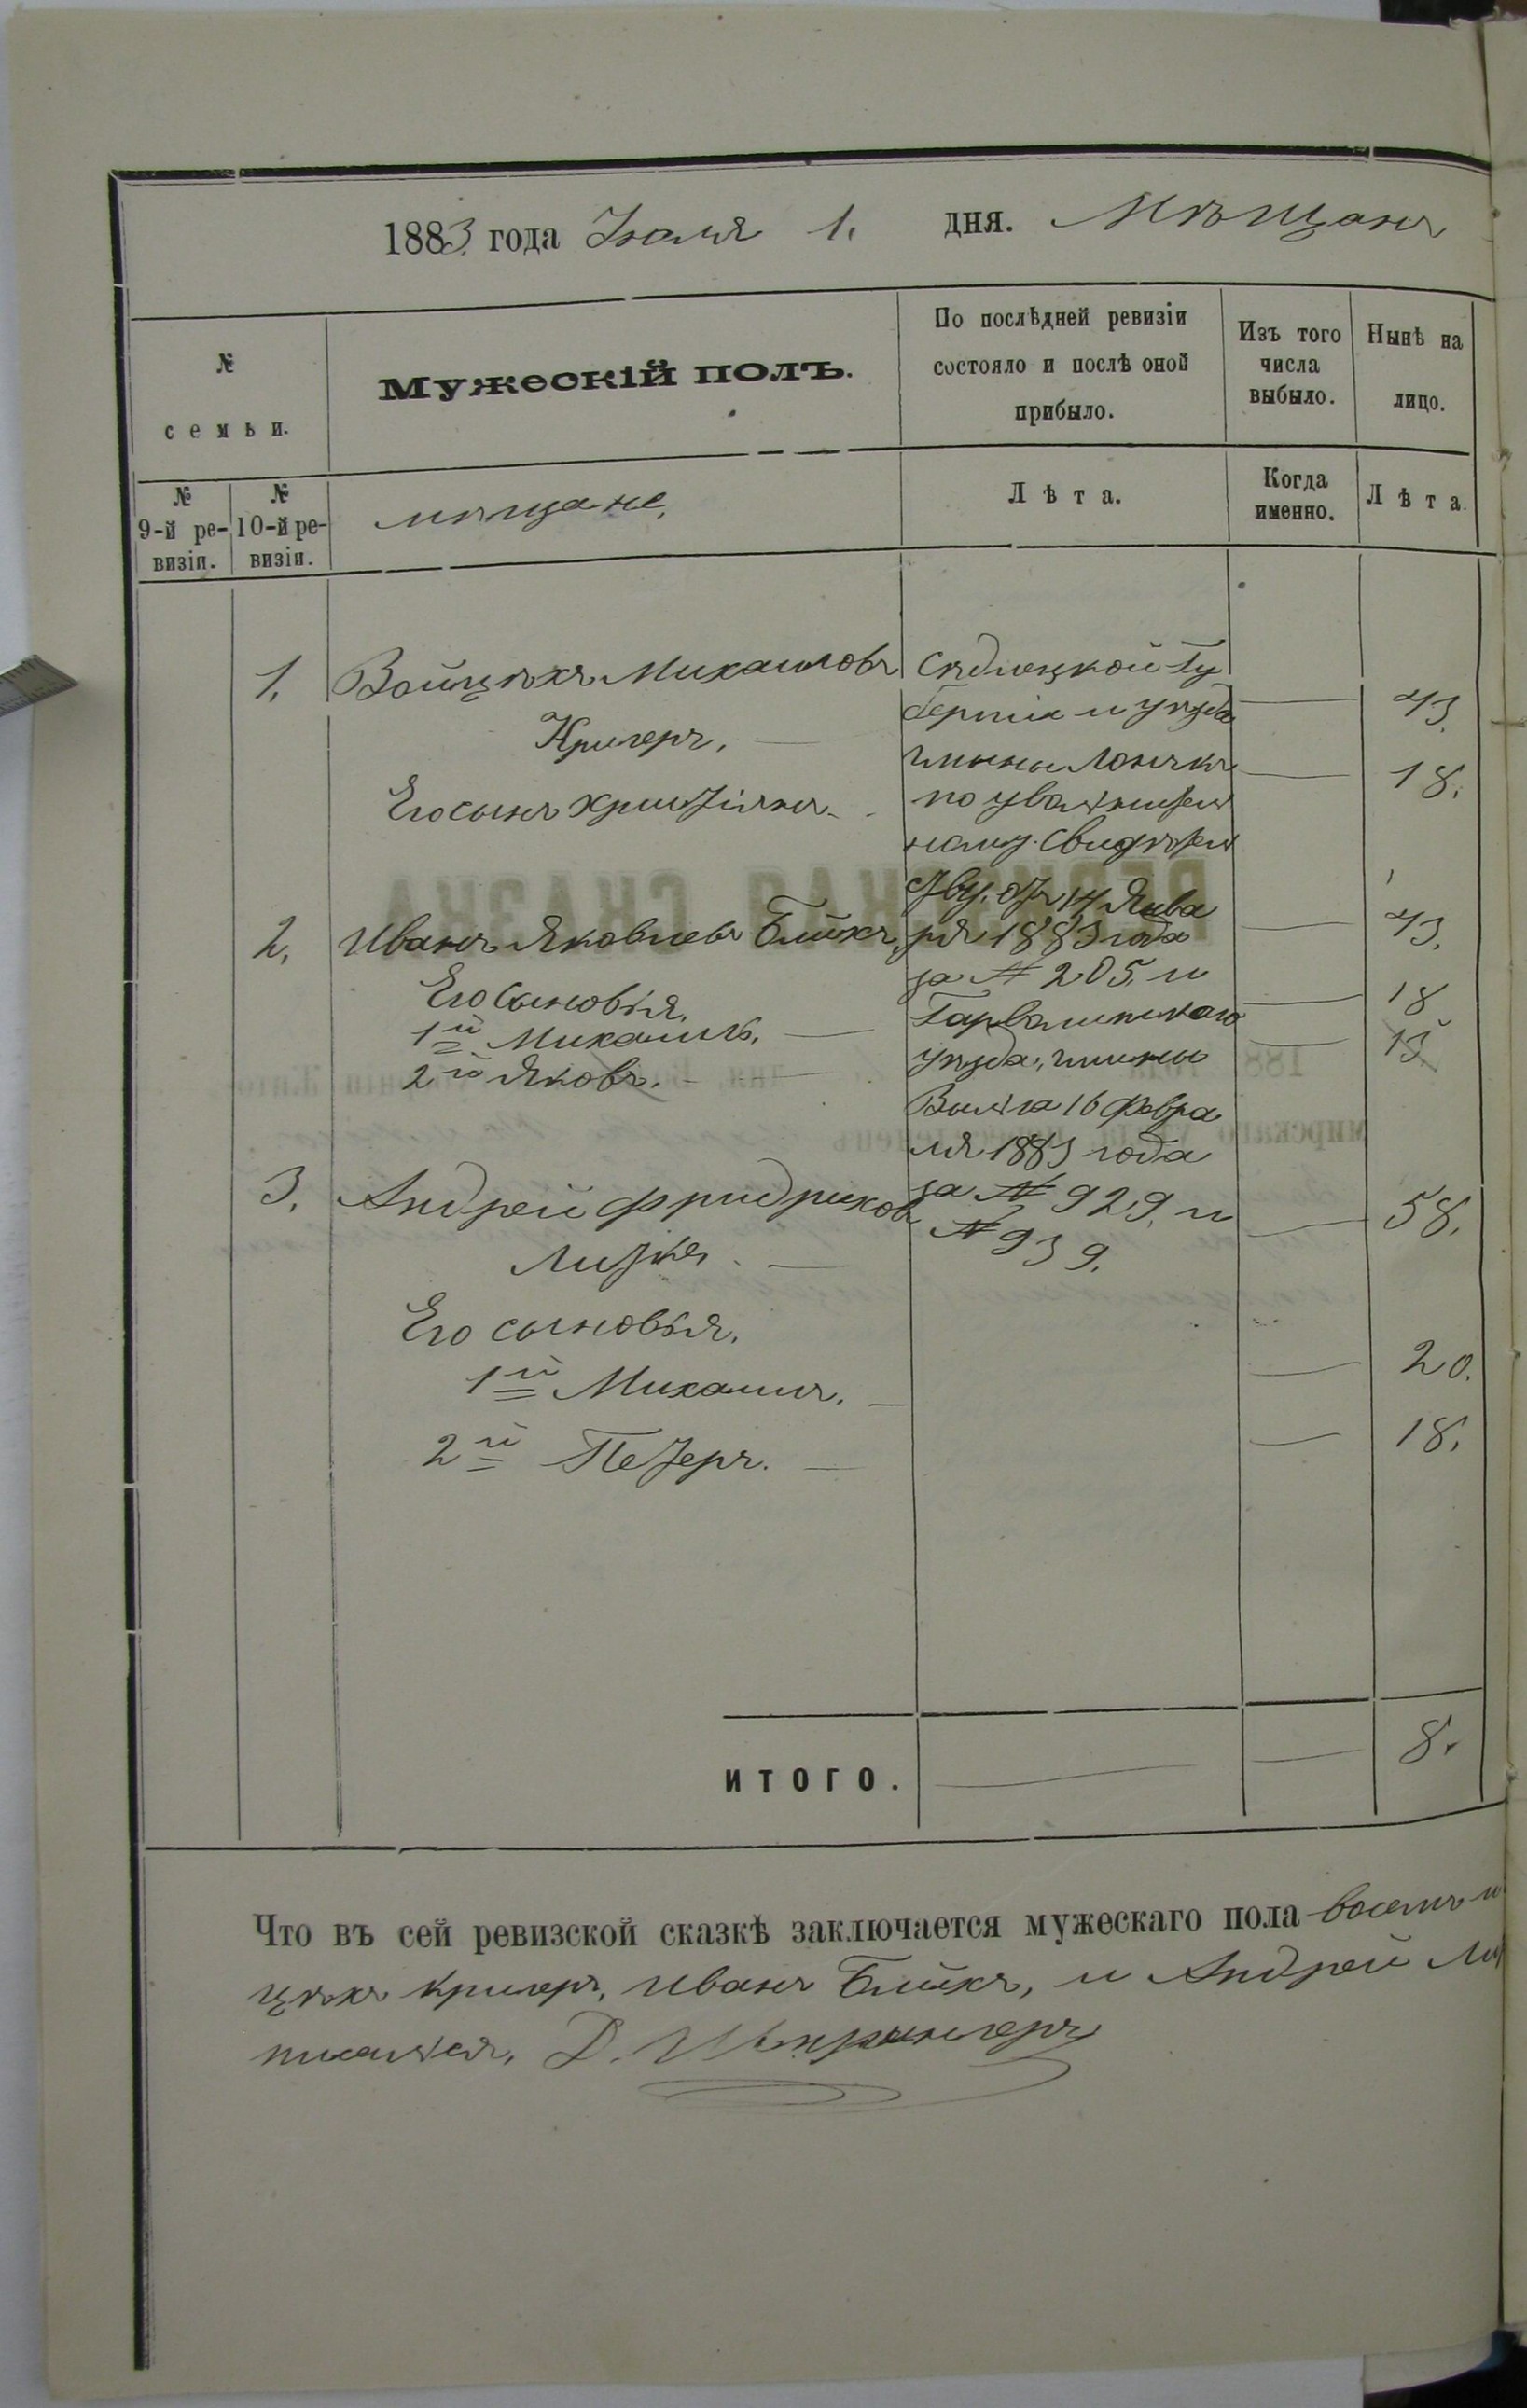 1883 года Іюля 1. дня. Мѣщанъ
№ семьи.
Мужескій полъ.
По послѣдней ревизіи состояло и послѣ оной прибыло.
Изъ того числа выбыло.
Нынѣ на лицо.
№ 9-й ревизіи.
№ 10-й ревизіи.
мѣщане,
Лѣта.
Когда именно.
Лѣта.
1. Войцѣхъ Михаиловъ
Кригеръ, — 43.
Его сынъ Христіянъ — 18.
Сѣдлецкой Гу
берніи и уѣзда
гмины
по увольнитель
ному Свидѣтель
ству, отъ 14 Янва
ря 1883 года
за № 205, и
Гарволинскаго
уѣзда, гмины
Вильга 16 Февра
ля 1883 года
за № 929. и
№ 939.
2. Иванъ Яковлевъ Блокъ, — 43.
Его Сыновья,
1й Михаилъ, — 18
2й Яковъ. — 13
3. Андрей Фридриховъ — 58.
Литке. —
Его сыновья,
1й Михаилъ. — 20.
2й Петеръ. — 18.
ИТОГО. — — 8.
Что въ сей ревизской сказкѣ заключается мужескаго пола восемь
цѣхъ Кригеръ, Иванъ Блокъ, и Андрей Ли
писался, Д. Шпрингеръ
РЕВИЗСКАЯ СКАЗКА